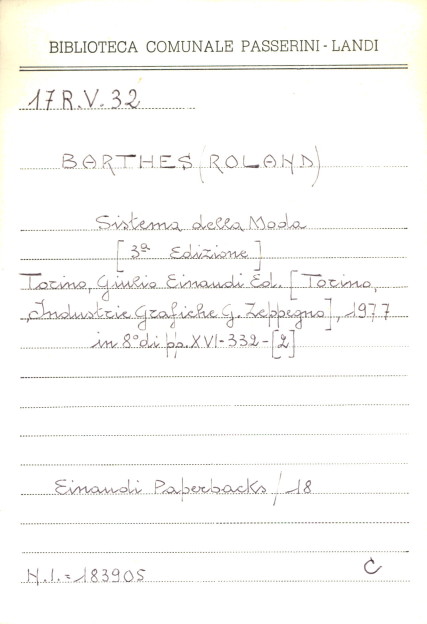 BIBLIOTECA COMUNALE PASSERINI - LANDI
17 R.V. 32
BARTHES (ROLAND)
Sistema della Moda
[3ª Edizione]
Torino, Giulio Einaudi Ed. [Torino,
Industrie Grafiche G. Zeppegno], 1977
in 8° di pp. XVI-332-[2]
Einaudi Paperbacks / 18
N.I. = 183905
C